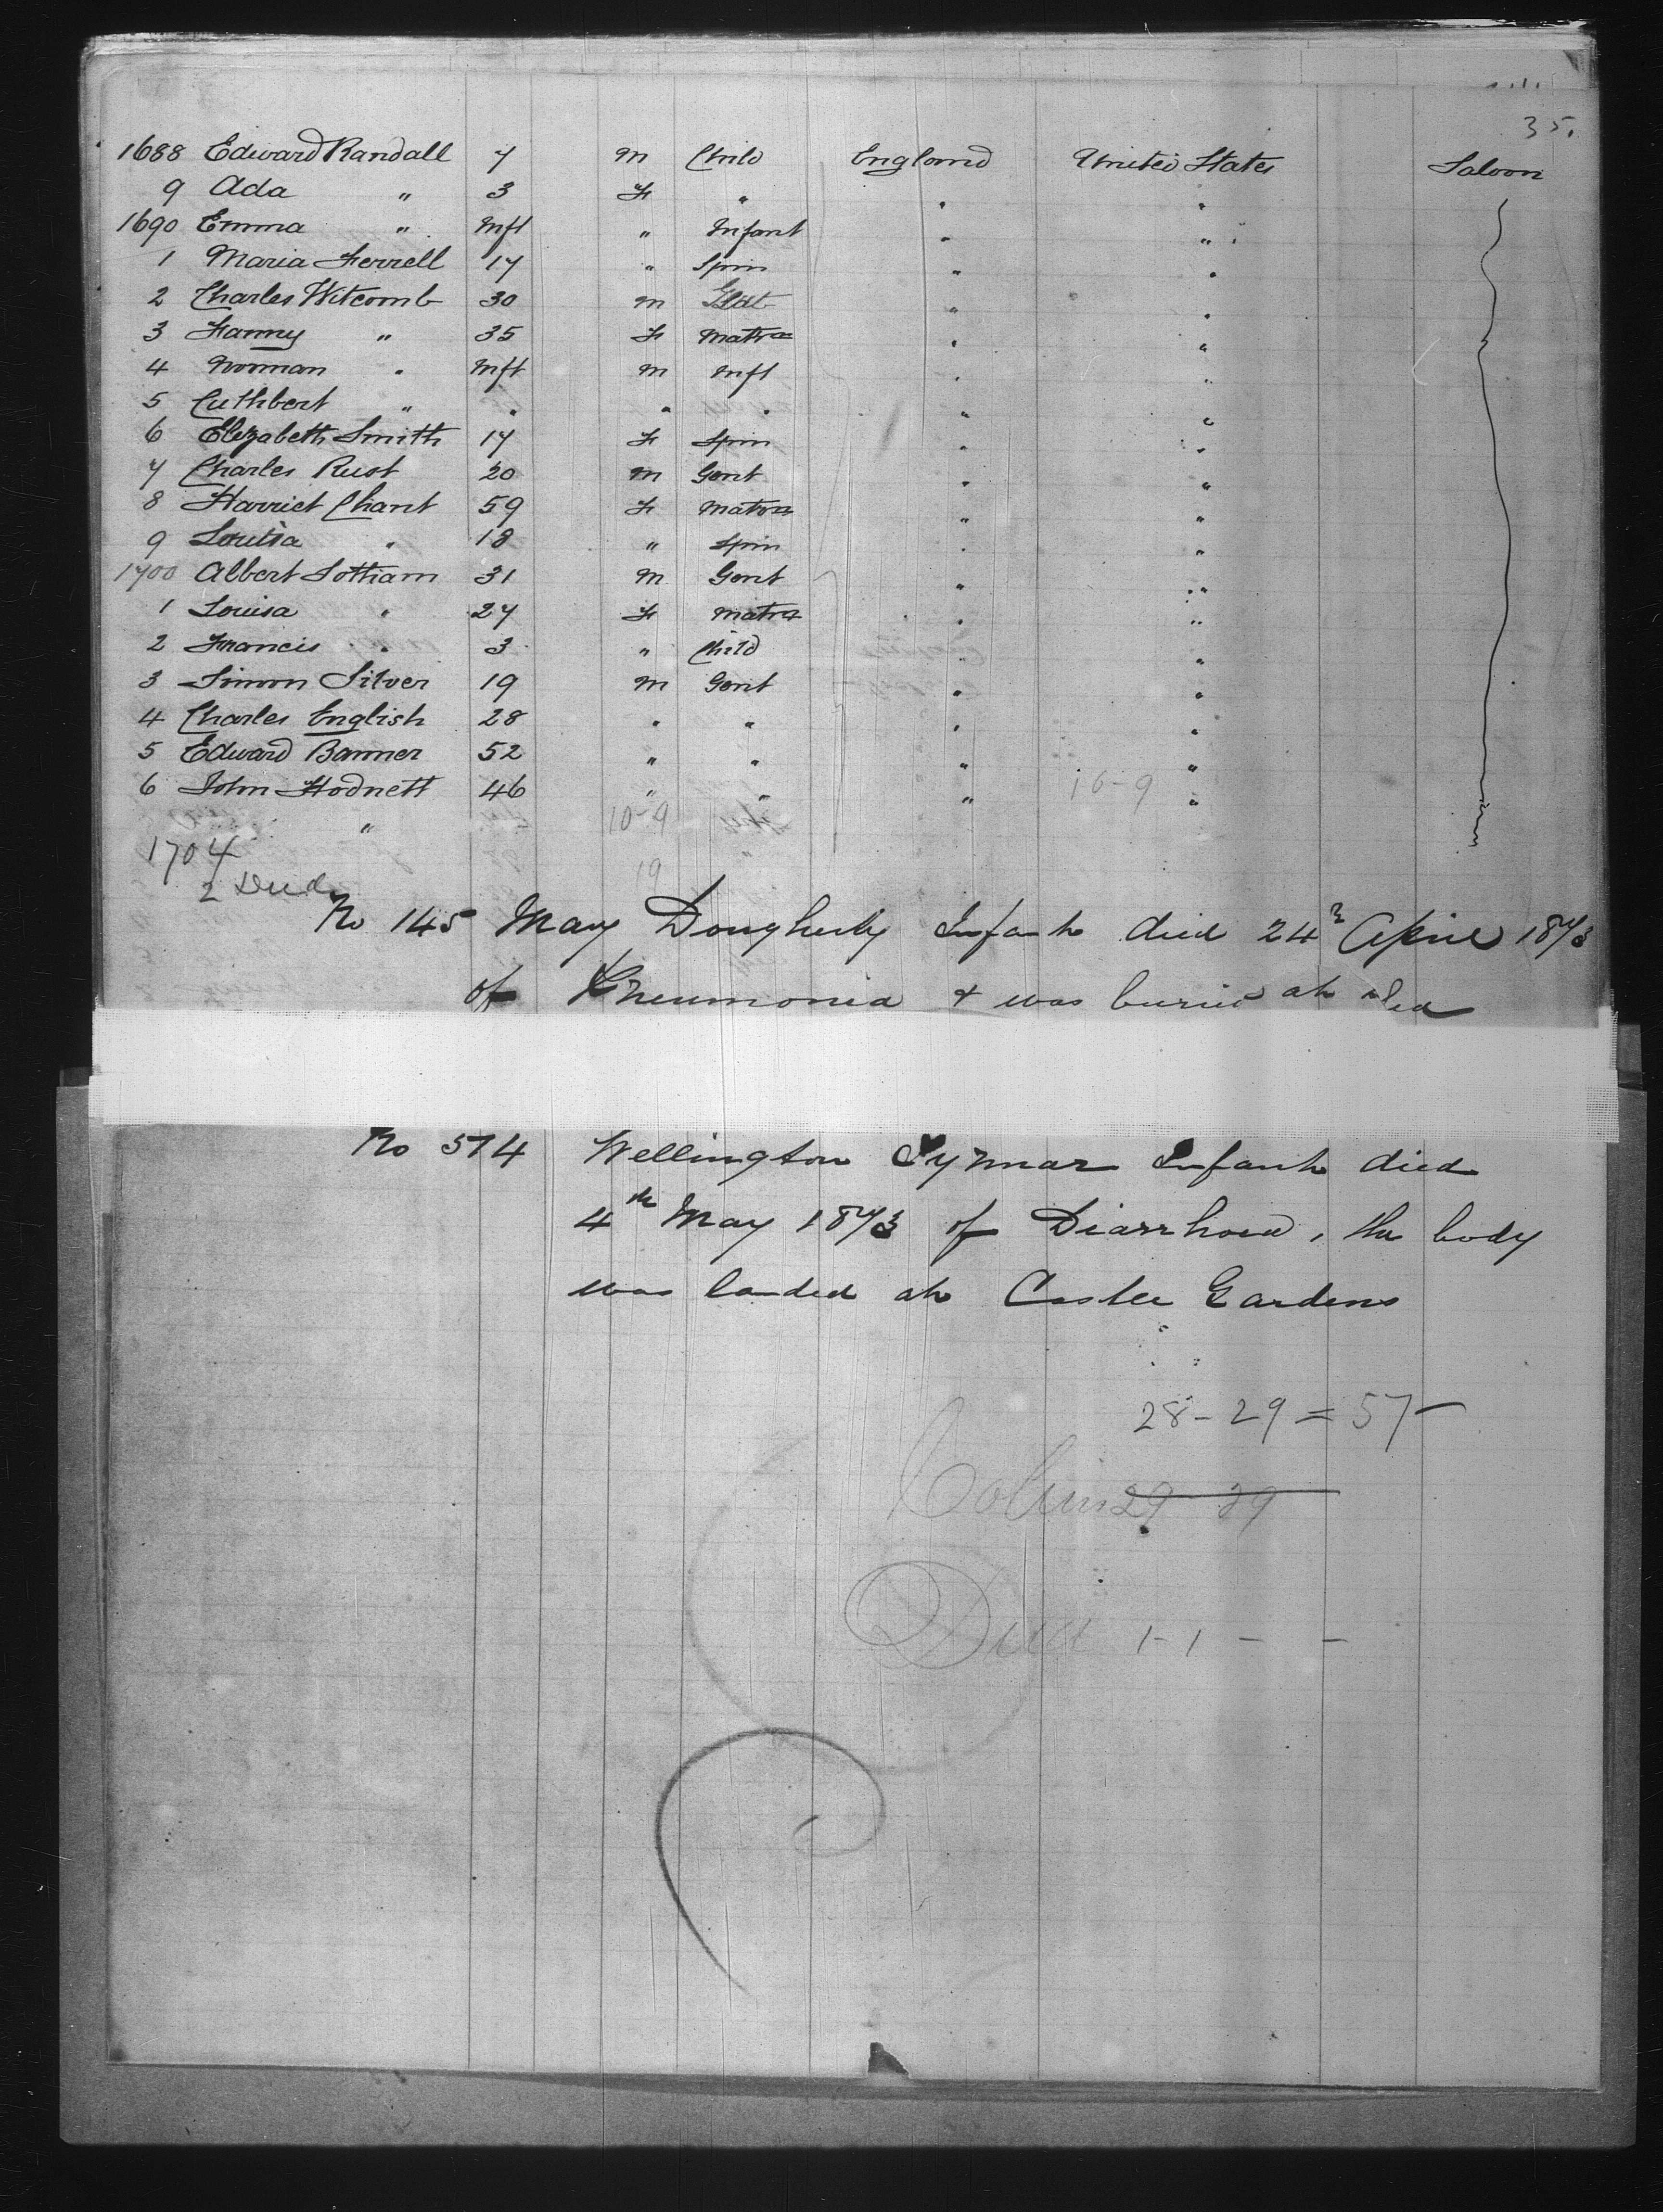 35.
1688 Edward Randall 7 M Child England United States Saloon
9 Ada " 3 F " " "
1690 Emma " Inft " Infant " "
1 Maria Ferrell 17 " Spin " "
2 Charles Witcomb 30 M Gent " "
3 Fanny " 35 F Matron " "
4 Norman " Inft M Inft " "
5 Cuthbert " " " " " "
6 Elizabeth Smith 17 F Spin " "
7 Charles Rust 20 M Gent " "
8 Harriet Chant 59 F Matron " "
9 Louisa " 18 " Spin " "
1700 Albert Sottiam 31 M Gent " "
1 Louisa " 27 F Matrn " "
2 Francis " 3 " Child " "
3 Simon Silver 19 M Gent " "
4 Charles English 28 " " " "
5 Edward Banner 52 " " " "
6 John Hodnett 46 " " " 16-9 "
" 10-9
1704 19
2 Died
No 145 Mary Dougherty Infant died 24th April 1873
of Pneumonia & was buried at Sea
No 574 Wellington Symar Infant died
4th May 1873 of Diarrhoea, the body
was landed at Castle Gardens
28-29=57-
29 29
Died 1-1 - -